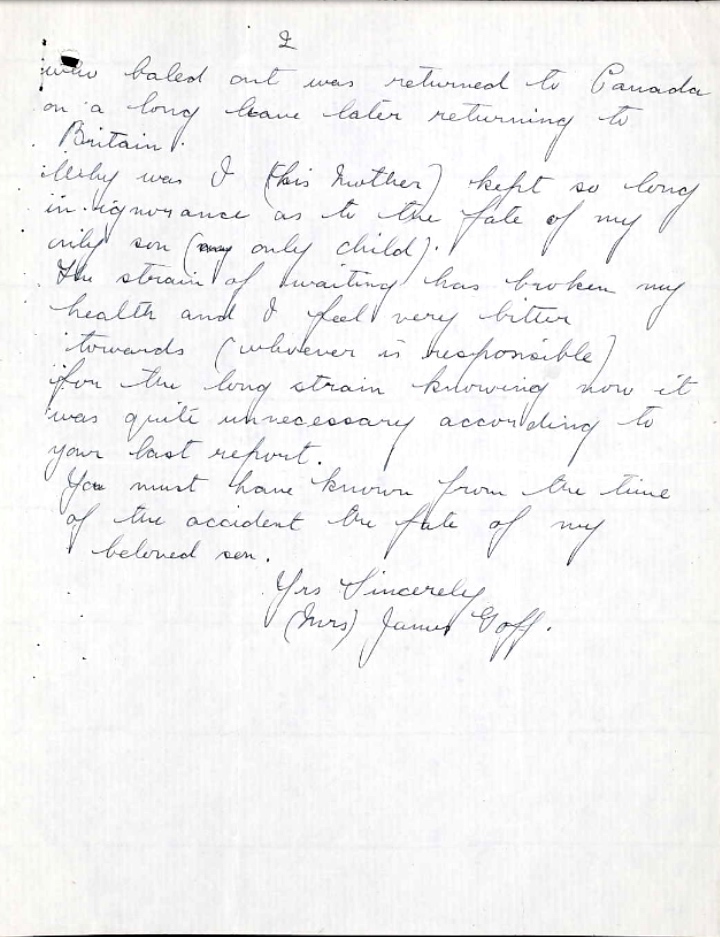 2
who baled out was returned to Canada
on a long leave later returning to
Britain.
Why was I (his Mother) kept so long
in ignorance as to the fate of my
only son (my only child).
The strain of waiting has broken my
health and I feel very bitter
towards (whoever is responsible)
for the long strain knowing now it
was quite unnecessary according to
your last report.
You must have known from the time
of the accident the fate of my
beloved son.
Yrs Sincerely
(Mrs) James Goff.